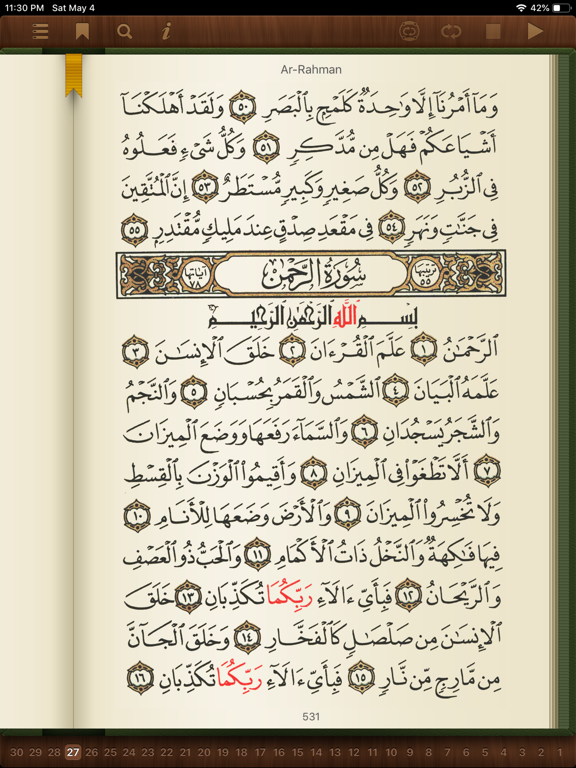 11:30 PM Sat May 4 42%
Ar-Rahman
وَمَآ أَمْرُنَآ إِلَّا وَٰحِدَةٌ كَلَمْحٍۭ بِٱلْبَصَرِ ٥٠ وَلَقَدْ أَهْلَكْنَآ
أَشْيَاعَكُمْ فَهَلْ مِن مُّدَّكِرٍ ٥١ وَكُلُّ شَىْءٍ فَعَلُوهُ
فِى ٱلزُّبُرِ ٥٢ وَكُلُّ صَغِيرٍ وَكَبِيرٍ مُّسْتَطَرٌ ٥٣ إِنَّ ٱلْمُتَّقِينَ
فِى جَنَّٰتٍ وَنَهَرٍ ٥٤ فِى مَقْعَدِ صِدْقٍ عِندَ مَلِيكٍ مُّقْتَدِرٍۭ ٥٥
ترتيبها ٥٥ سُورَةُ الرَّحْمَٰن آياتها ٧٨
بِسْمِ ٱللَّهِ ٱلرَّحْمَٰنِ ٱلرَّحِيمِ
ٱلرَّحْمَٰنُ ١ عَلَّمَ ٱلْقُرْءَانَ ٢ خَلَقَ ٱلْإِنسَٰنَ ٣
عَلَّمَهُ ٱلْبَيَانَ ٤ ٱلشَّمْسُ وَٱلْقَمَرُ بِحُسْبَانٍ ٥ وَٱلنَّجْمُ
وَٱلشَّجَرُ يَسْجُدَانِ ٦ وَٱلسَّمَآءَ رَفَعَهَا وَوَضَعَ ٱلْمِيزَانَ
٧ أَلَّا تَطْغَوْا۟ فِى ٱلْمِيزَانِ ٨ وَأَقِيمُوا۟ ٱلْوَزْنَ بِٱلْقِسْطِ
وَلَا تُخْسِرُوا۟ ٱلْمِيزَانَ ٩ وَٱلْأَرْضَ وَضَعَهَا لِلْأَنَامِ ١٠
فِيهَا فَٰكِهَةٌ وَٱلنَّخْلُ ذَاتُ ٱلْأَكْمَامِ ١١ وَٱلْحَبُّ ذُو ٱلْعَصْفِ
وَٱلرَّيْحَانُ ١٢ فَبِأَىِّ ءَالَآءِ رَبِّكُمَا تُكَذِّبَانِ ١٣ خَلَقَ
ٱلْإِنسَٰنَ مِن صَلْصَٰلٍ كَٱلْفَخَّارِ ١٤ وَخَلَقَ ٱلْجَآنَّ
مِن مَّارِجٍ مِّن نَّارٍ ١٥ فَبِأَىِّ ءَالَآءِ رَبِّكُمَا تُكَذِّبَانِ ١٦
531
30 29 28 27 26 25 24 23 22 21 20 19 18 17 16 15 14 13 12 11 10 9 8 7 6 5 4 3 2 1